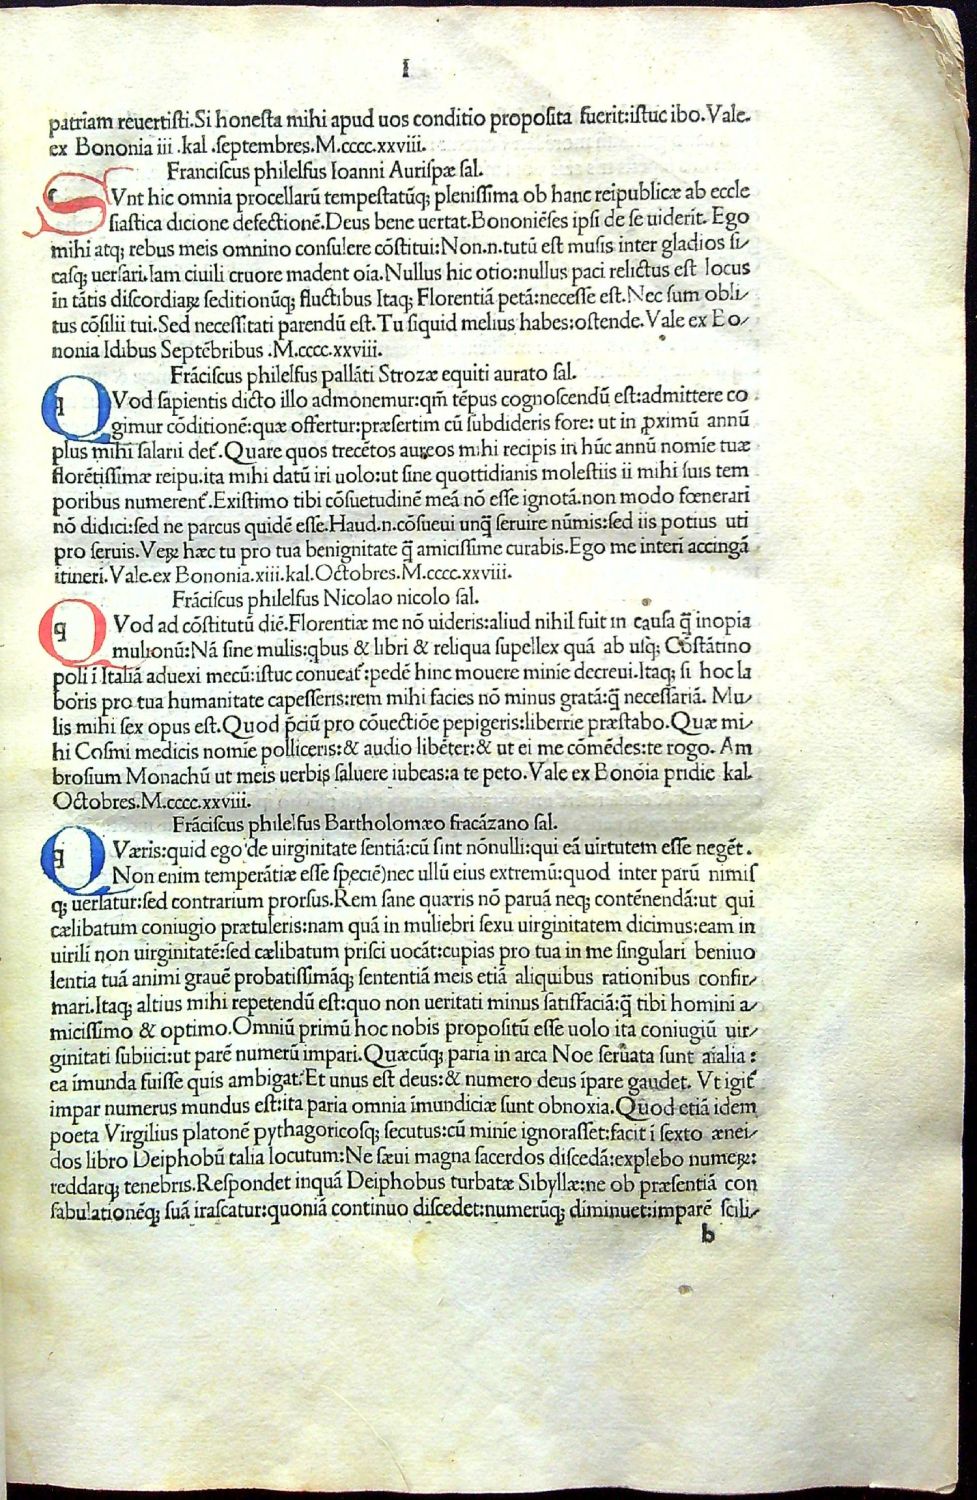 I
patriam reuertisti.Si honesta mihi apud uos conditio proposita fuerit:istuc ibo.Vale.
ex Bononia iii .kal .septembres.M.cccc.xxviii.
Franciscus philelfus Ioanni Aurispæ sal.
SVnt hic omnia procellarū tempestatūq; plenissima ob hanc reipublicæ ab eccle
siastica dicione defectionē.Deus bene uertat.Bononiēses ipsi de se uiderit. Ego
mihi atq; rebus meis omnino consulere cōstitui:Non.n.tutū est musis inter gladios si/
casq; uersari.Iam ciuili cruore madent oīa.Nullus hic otio:nullus paci relictus est locus
in tātis discordiaꝝ seditionūq; fluctibus Itaq; Florentiā petā:necesse est.Nec sum obli/
tus cōsilii tui.Sed necessitati parendū est.Tu siquid melius habes:ostende.Vale ex Bo/
nonia Idibus Septēbribus .M.cccc.xxviii.
Frāciscus philelfus pallāti Strozæ equiti aurato sal.
QVod sapientis dicto illo admonemur:qm̄ tēpus cognoscendū est:admittere co
gimur cōditionē:quæ offertur:præsertim cū subdideris fore: ut in ꝓximū annū
plus mihi salarii det᷑.Quare quos trecētos aureos mihi recipis in hūc annū nomīe tuæ
florētissimæ reipu.ita mihi datū iri uolo:ut sine quottidianis molestiis ii mihi suis tem
poribus numerent᷑.Existimo tibi cōsuetudinē meā nō esse ignotā.non modo fœnerari
nō didici:sed ne parcus quidē esse.Haud.n.cōsueui unq̄ seruire nūmis:sed iis potius uti
pro seruis.Veꝝ hæc tu pro tua benignitate q̄ amicissime curabis.Ego me interī accingā
itineri.Vale.ex Bononia.xiii.kal.Octobres.M.cccc.xxviii.
Frāciscus philelfus Nicolao nicolo sal.
QVod ad cōstitutū diē.Florentiæ me nō uideris:aliud nihil fuit in causa q̄ inopia
mulionū:Nā sine mulis:qbus & libri & reliqua supellex quā ab usq; Cōstātino
poli ī Italiā aduexi mecū:istuc conueat᷑:pedē hinc mouere minīe decreui.Itaq; si hoc la
boris pro tua humanitate capesseris:rem mihi facies nō minus gratā:q̄ necessariā. Mu/
lis mihi sex opus est.Quod p̄ciū pro cōuectiōe pepigeris:liberrīe præstabo.Quæ mi/
hi Cosmi medicis nomīe polliceris:& audio libēter:& ut ei me cōmēdes:te rogo. Am
brosium Monachū ut meis uerbis saluere iubeas:a te peto.Vale ex Bonōia pridie kal.
Octobres.M.cccc.xxviii.
Frāciscus philelfus Bartholomæo fracāzano sal.
QVæris:quid ego de uirginitate sentiā:cū sint nōnulli:qui eā uirtutem esse negēt.
Non enim temperātiæ esse speciē)nec ullū eius extremū:quod inter parū nimis
q; uersatur:sed contrarium prorsus.Rem sane quæris nō paruā neq; contēnendā:ut qui
cælibatum coniugio prætuleris:nam quā in muliebri sexu uirginitatem dicimus:eam in
uirili non uirginitatē:sed cælibatum prisci uocāt:cupias pro tua in me singulari beniuo
lentia tuā animi grauē probatissimāq; sententiā meis etiā aliquibus rationibus confir/
mari.Itaq; altius mihi repetendū est:quo non ueritati minus satisfaciā:q̄ tibi homini a/
micissimo & optimo.Omniū primū hoc nobis propositū esse uolo ita coniugiū uir/
ginitati subiici:ut parē numerū impari.Quæcūq; paria in arca Noe seruata sunt aīalia:
ea īmunda fuisse quis ambigat?Et unus est deus:& numero deus īpare gaudet. Vt igit᷑
impar numerus mundus est:ita paria omnia īmundiciæ sunt obnoxia.Quod etiā idem
poeta Virgilius platonē pythagoricosq; secutus:cū minīe ignorasset:facit ī sexto ænei/
dos libro Deiphobū talia locutum:Ne sæui magna sacerdos discedā:explebo numeꝝ:
reddarq; tenebris.Respondet inquā Deiphobus turbatæ Sibyllæ:ne ob præsentiā con
fabulationēq; suā irascatur:quoniā continuo discedet:numerūq; diminuet:imparē scili/
b